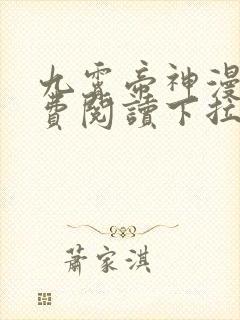 九霄帝神漫
費閱讀下拉
蕭家淇